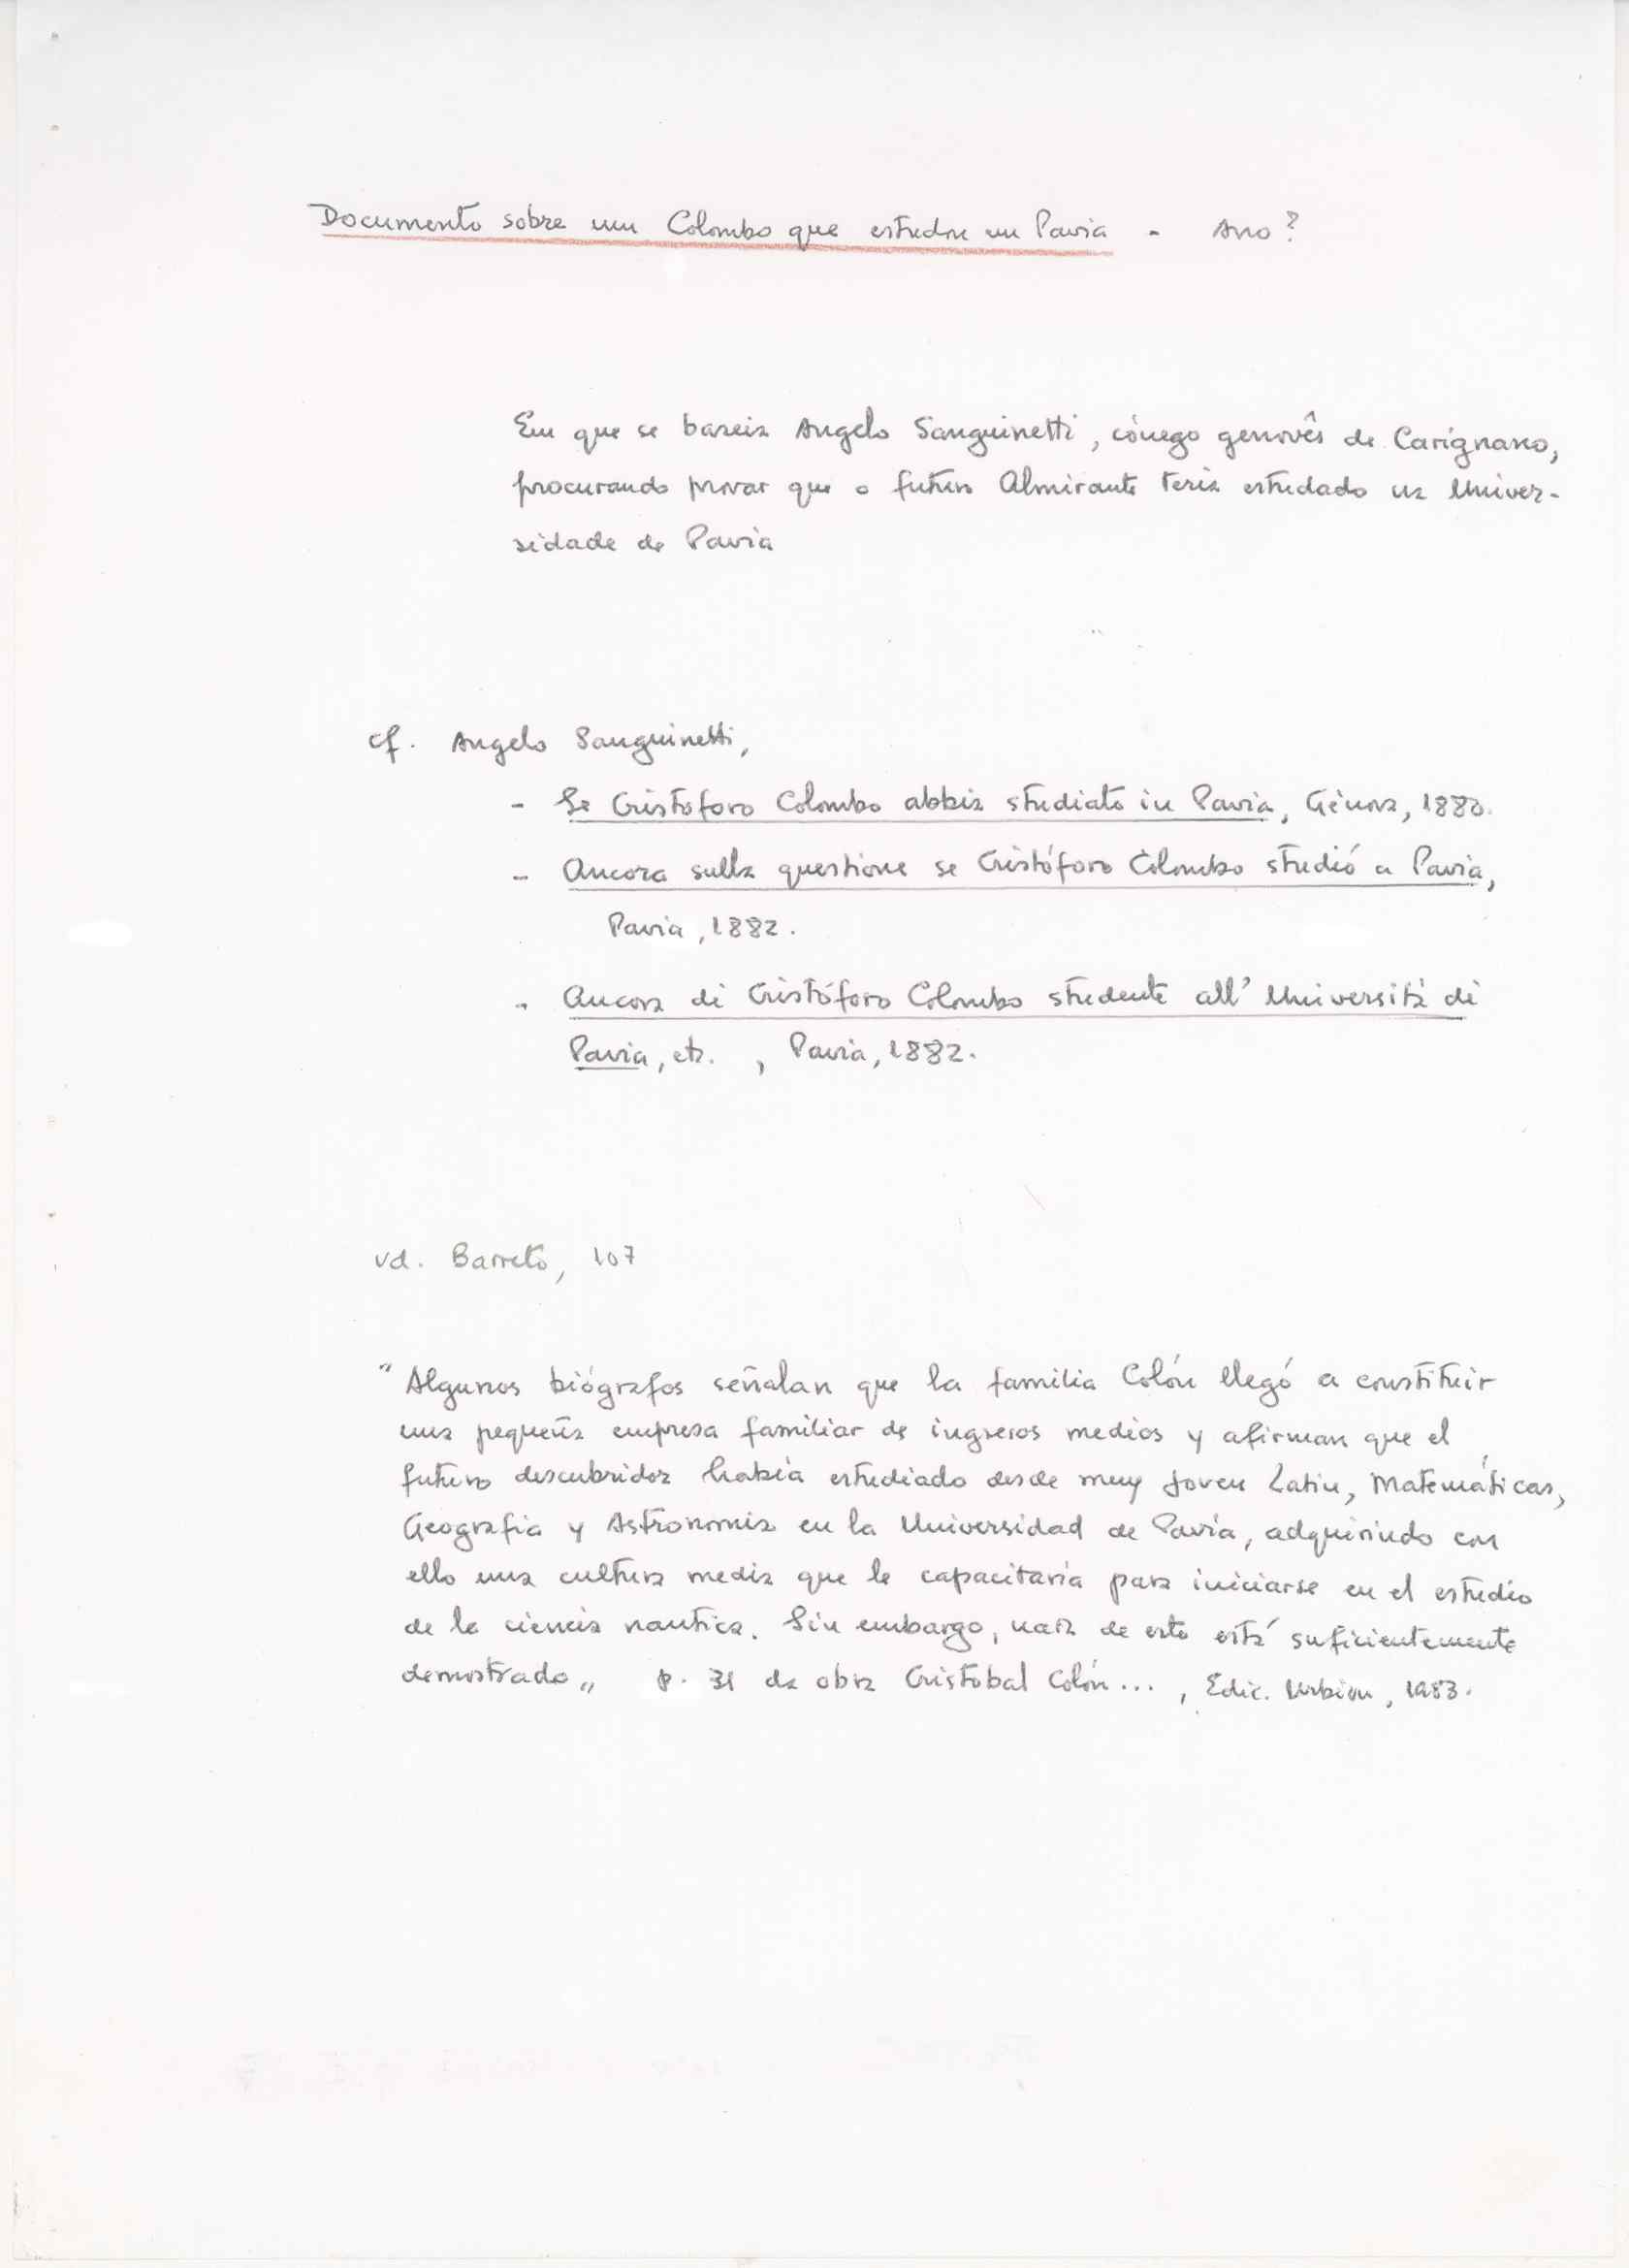 Documento sobre um Colombo que estudou em Pavia - Ano?
Em que se baseia Angelo Sanguinetti, cónego genovês de Carignano,
procurando provar que o futuro Almirante teria estudado na Univer-
sidade de Pavia
cf. Angelo Sanguinetti,
- Se Cristoforo Colombo abbia studiato in Pavia, Génova, 1880.
- Ancora sulla questione se Cristóforo Colombo studió a Pavia,
Pavia, 1882.
- Ancora di Cristóforo Colombo studente all' Università di
Pavia, etc. , Pavia, 1882.
vd. Barreto, 107
"Algunos biógrafos señalan que la familia Colón llegó a constituir
una pequeña empresa familiar de ingresos medios y afirman que el
futuro descubridor había estudiado desde muy joven Latin, Matemáticas,
Geografia y Astronomia en la Universidad de Pavía, adquirindo con
ello una cultura media que le capacitaría para iniciarse en el estudio
de la ciencia nautica. Sin embargo, nada de esto está suficientemente
demostrado„ p. 31 da obra Cristobal Colón... , Edic. Urbion, 1983.